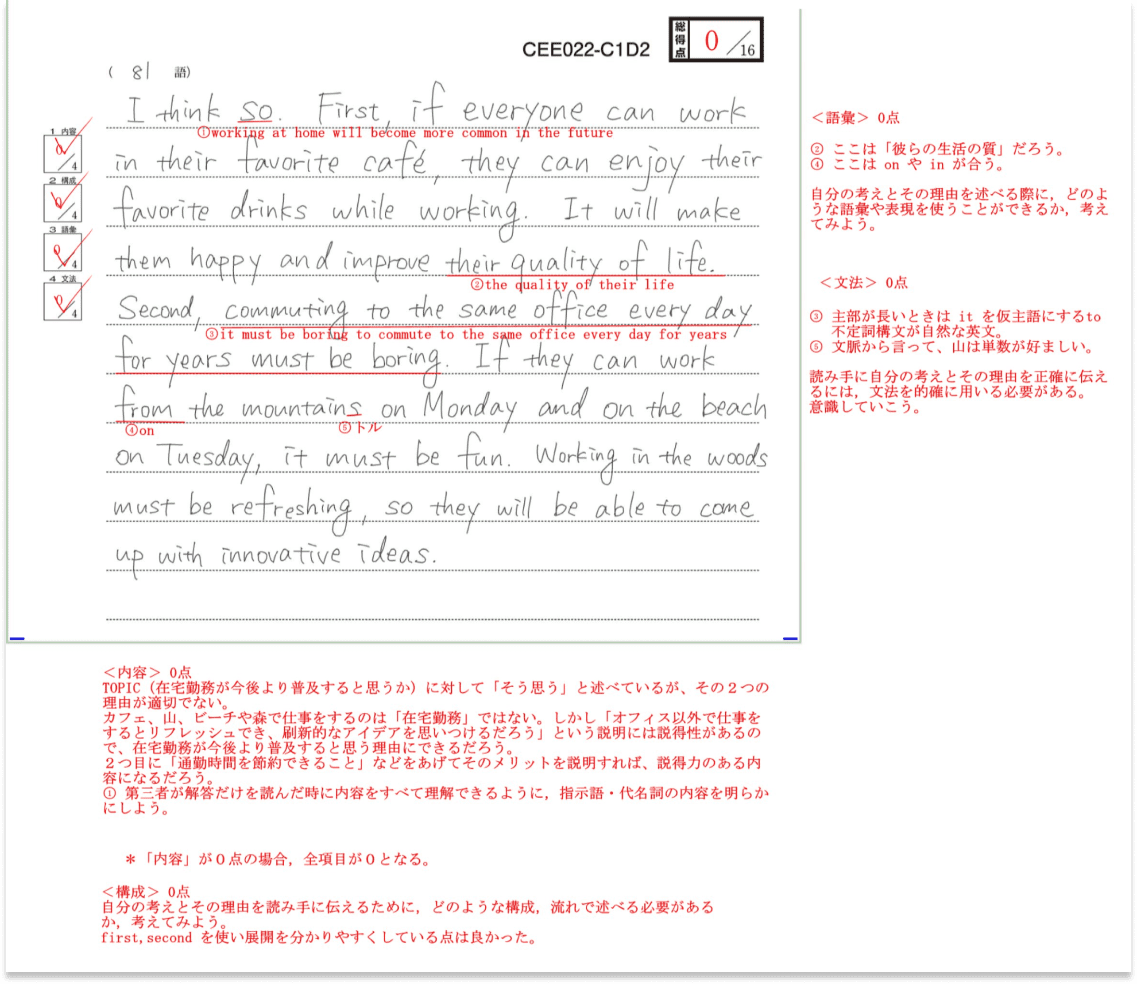 CEE022-C1D2
総得点 0/16
( 81 語)
I think so. First, if everyone can work
①working at home will become more common in the future
1 内容
0/4
in their favorite café, they can enjoy their
2 構成
0/4
favorite drinks while working. It will make
3 語彙
0/4
them happy and improve their quality of life.
②the quality of their life
4 文法
0/4
Second, commuting to the same office every day
③it must be boring to commute to the same office every day for years
for years must be boring. If they can work
from the mountains on Monday and on the beach
④on
⑤トル
on Tuesday, it must be fun. Working in the woods
must be refreshing, so they will be able to come
up with innovative ideas.
＜語彙＞ 0点
② ここは「彼らの生活の質」だろう。
④ ここは on や in が合う。
自分の考えとその理由を述べる際に，どのよ
うな語彙や表現を使うことができるか，考え
てみよう。
＜文法＞ 0点
③ 主部が長いときは it を仮主語にするto
不定詞構文が自然な英文。
⑤ 文脈から言って、山は単数が好ましい。
読み手に自分の考えとその理由を正確に伝え
るには，文法を的確に用いる必要がある。
意識していこう。
＜内容＞ 0点
TOPIC（在宅勤務が今後より普及すると思うか）に対して「そう思う」と述べているが、その２つの
理由が適切でない。
カフェ、山、ビーチや森で仕事をするのは「在宅勤務」ではない。しかし「オフィス以外で仕事を
するとリフレッシュでき、刷新的なアイデアを思いつけるだろう」という説明には説得性があるの
で、在宅勤務が今後より普及すると思う理由にできるだろう。
２つ目に「通勤時間を節約できること」などをあげてそのメリットを説明すれば、説得力のある内
容になるだろう。
① 第三者が解答だけを読んだ時に内容をすべて理解できるように，指示語・代名詞の内容を明らか
にしよう。
＊「内容」が０点の場合，全項目が０となる。
＜構成＞ 0点
自分の考えとその理由を読み手に伝えるために，どのような構成，流れで述べる必要がある
か，考えてみよう。
first,second を使い展開を分かりやすくしている点は良かった。